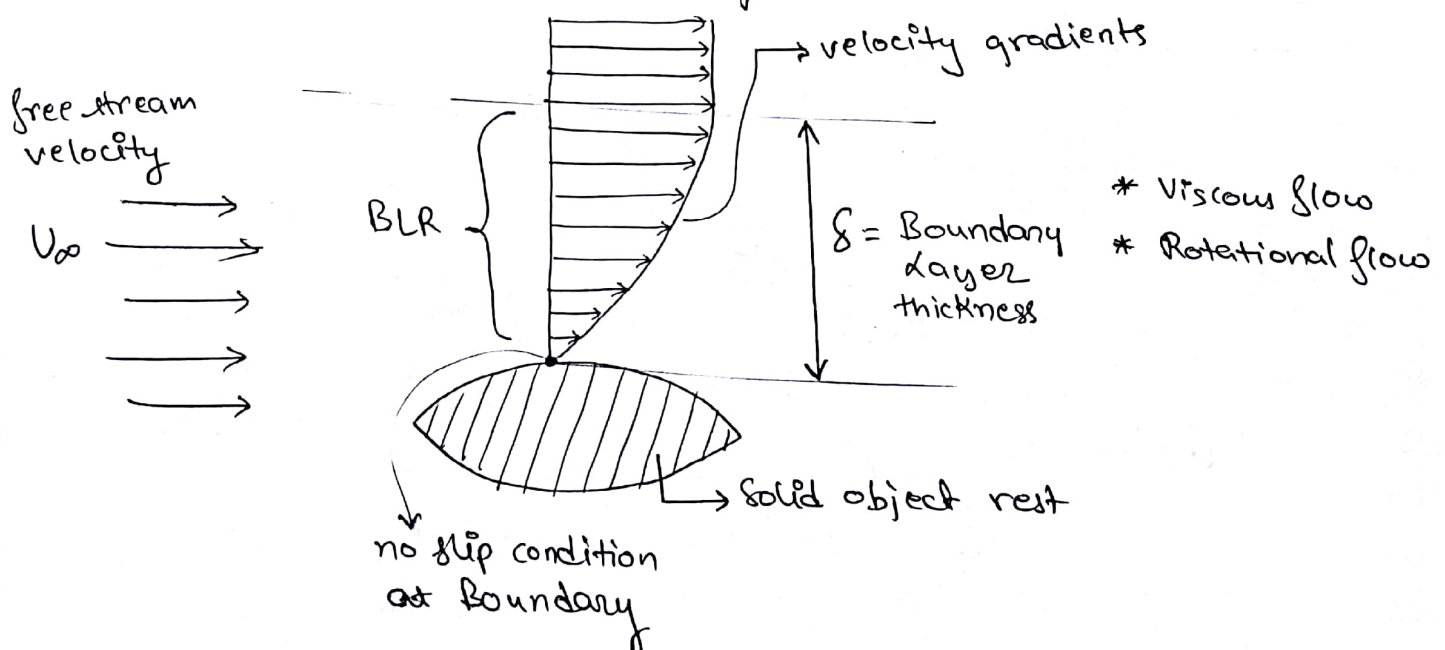 velocity gradients
free stream
velocity
U∞
BLR
δ = Boundary
Layer
thickness
* Viscous flow
* Rotational flow
Solid object rest
no slip condition
at Boundary